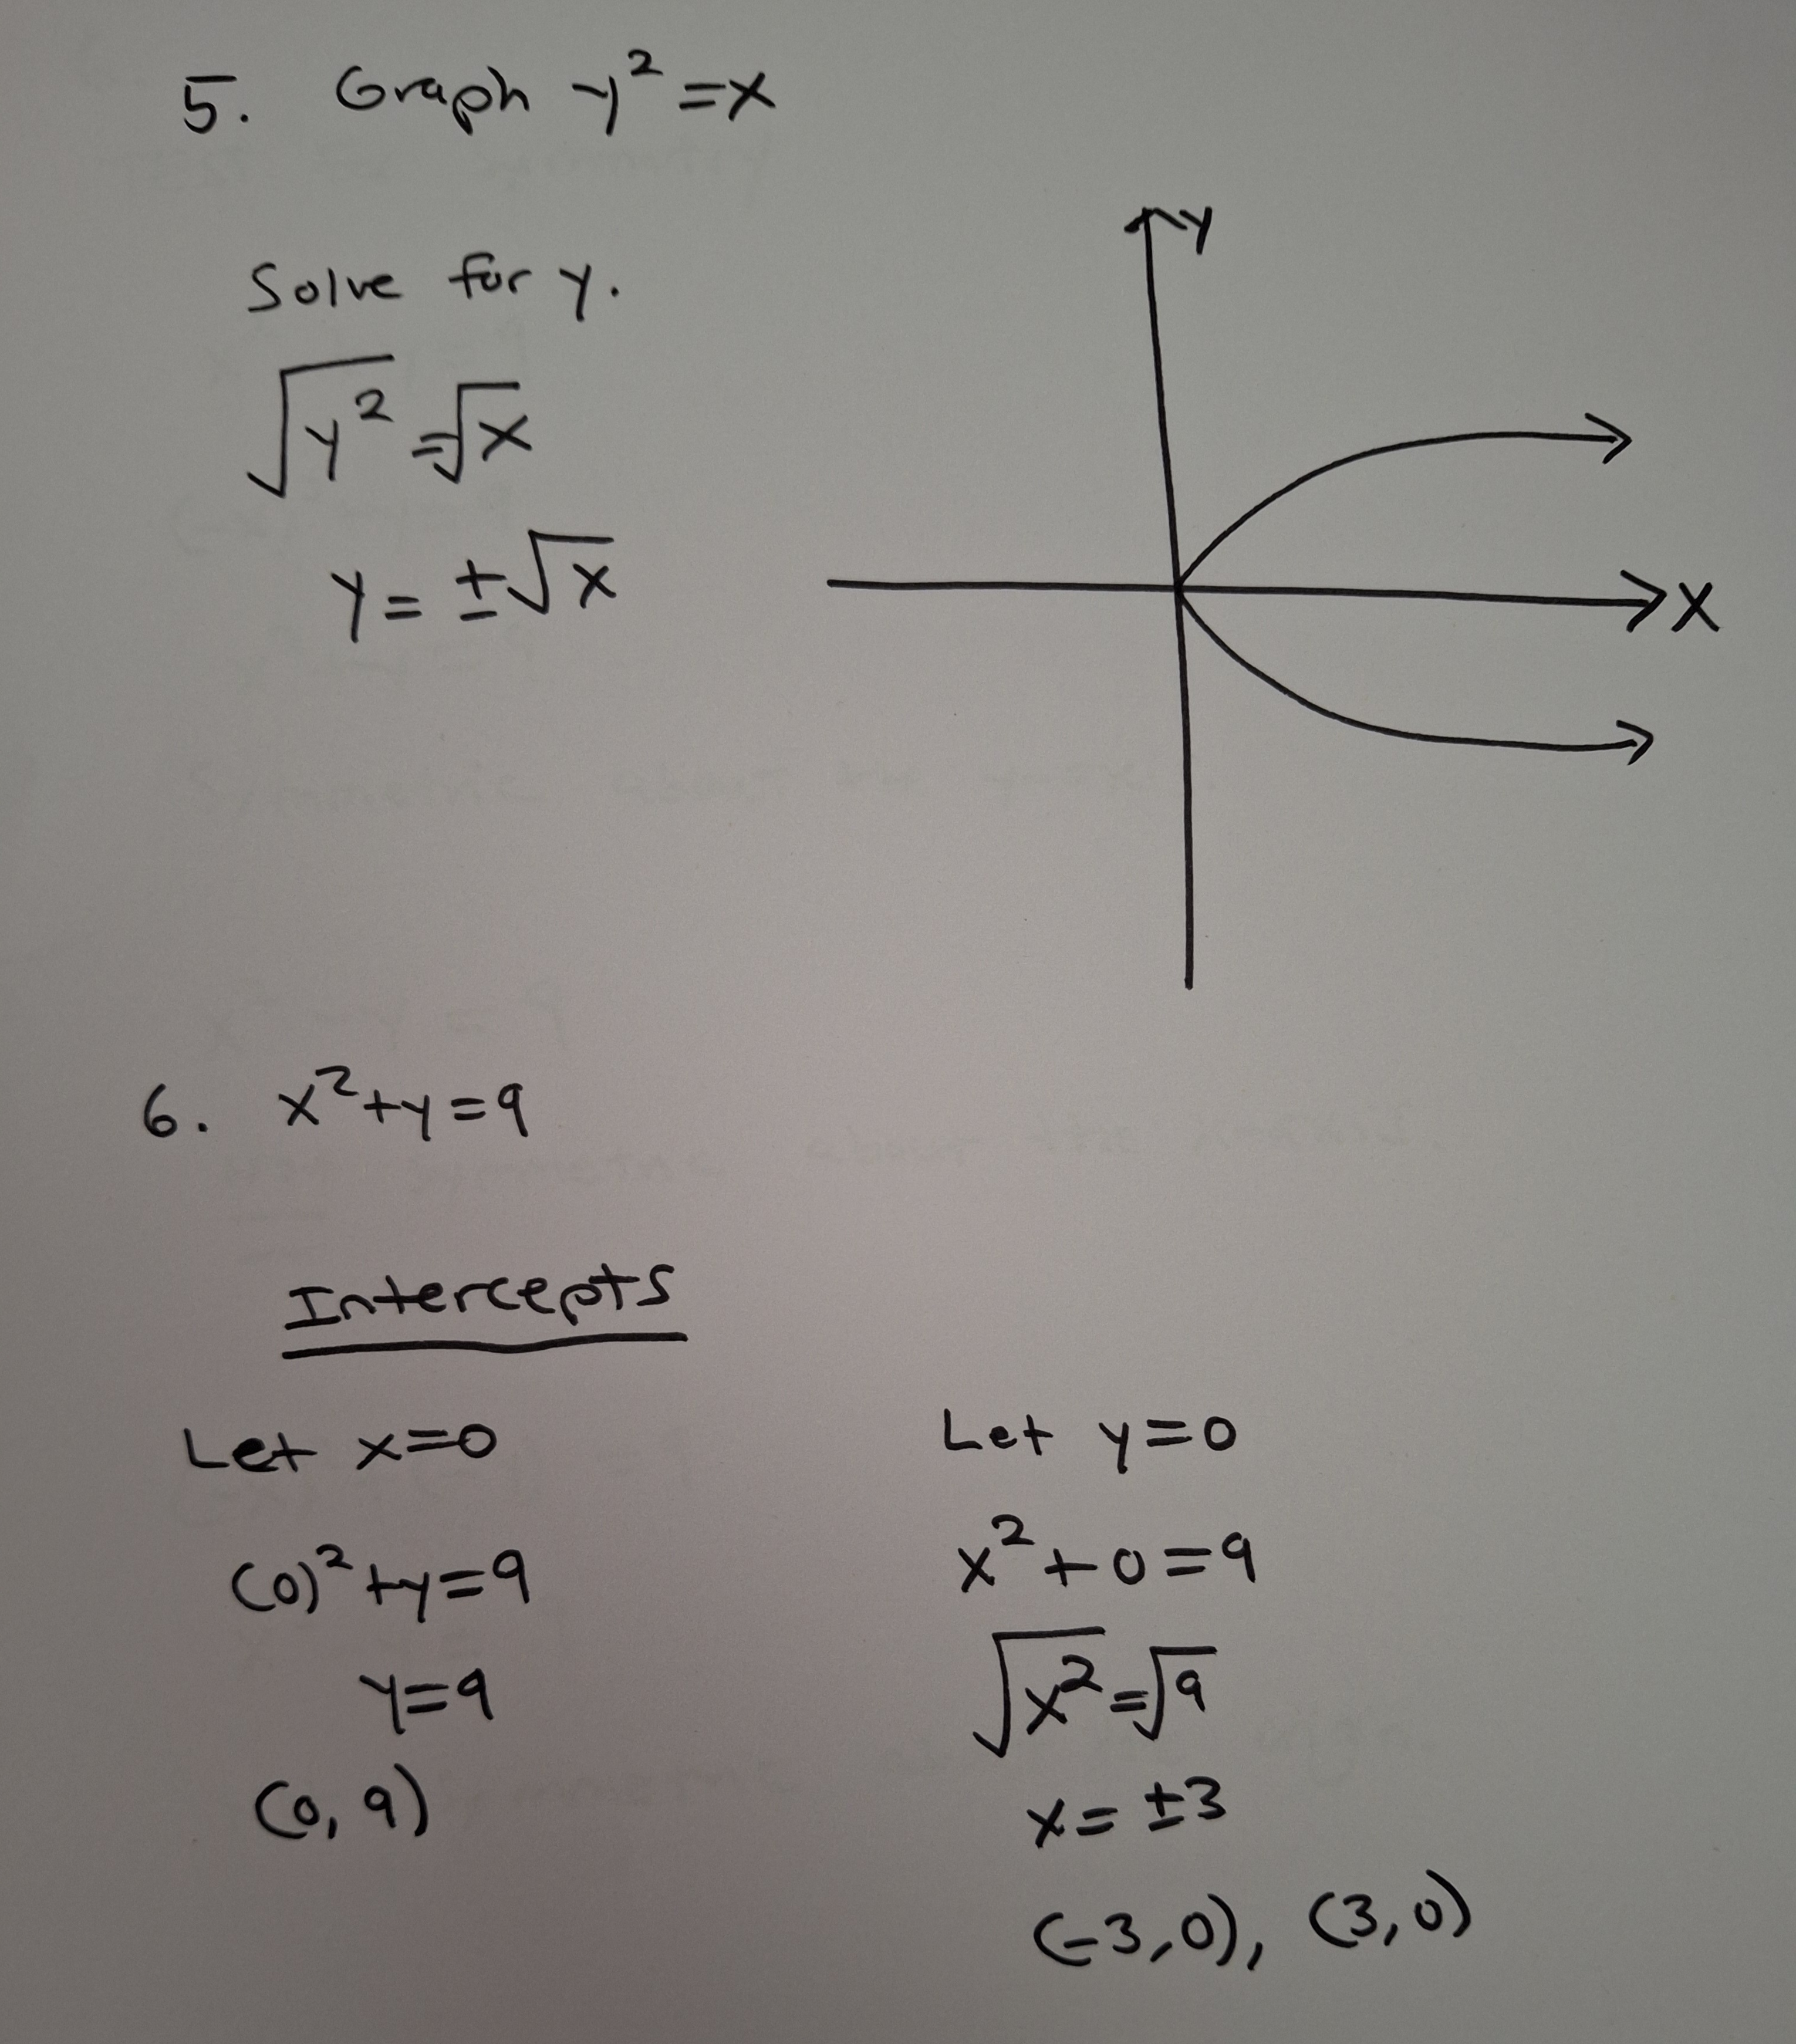 5. Graph y² = x
Y
Solve for y.
√y² = √x
y = ±√x
X
6. x² + y = 9
Intercepts
Let x = 0
(0)² + y = 9
y = 9
(0, 9)
Let y = 0
x² + 0 = 9
√x² = √9
x = ±3
(-3, 0), (3, 0)